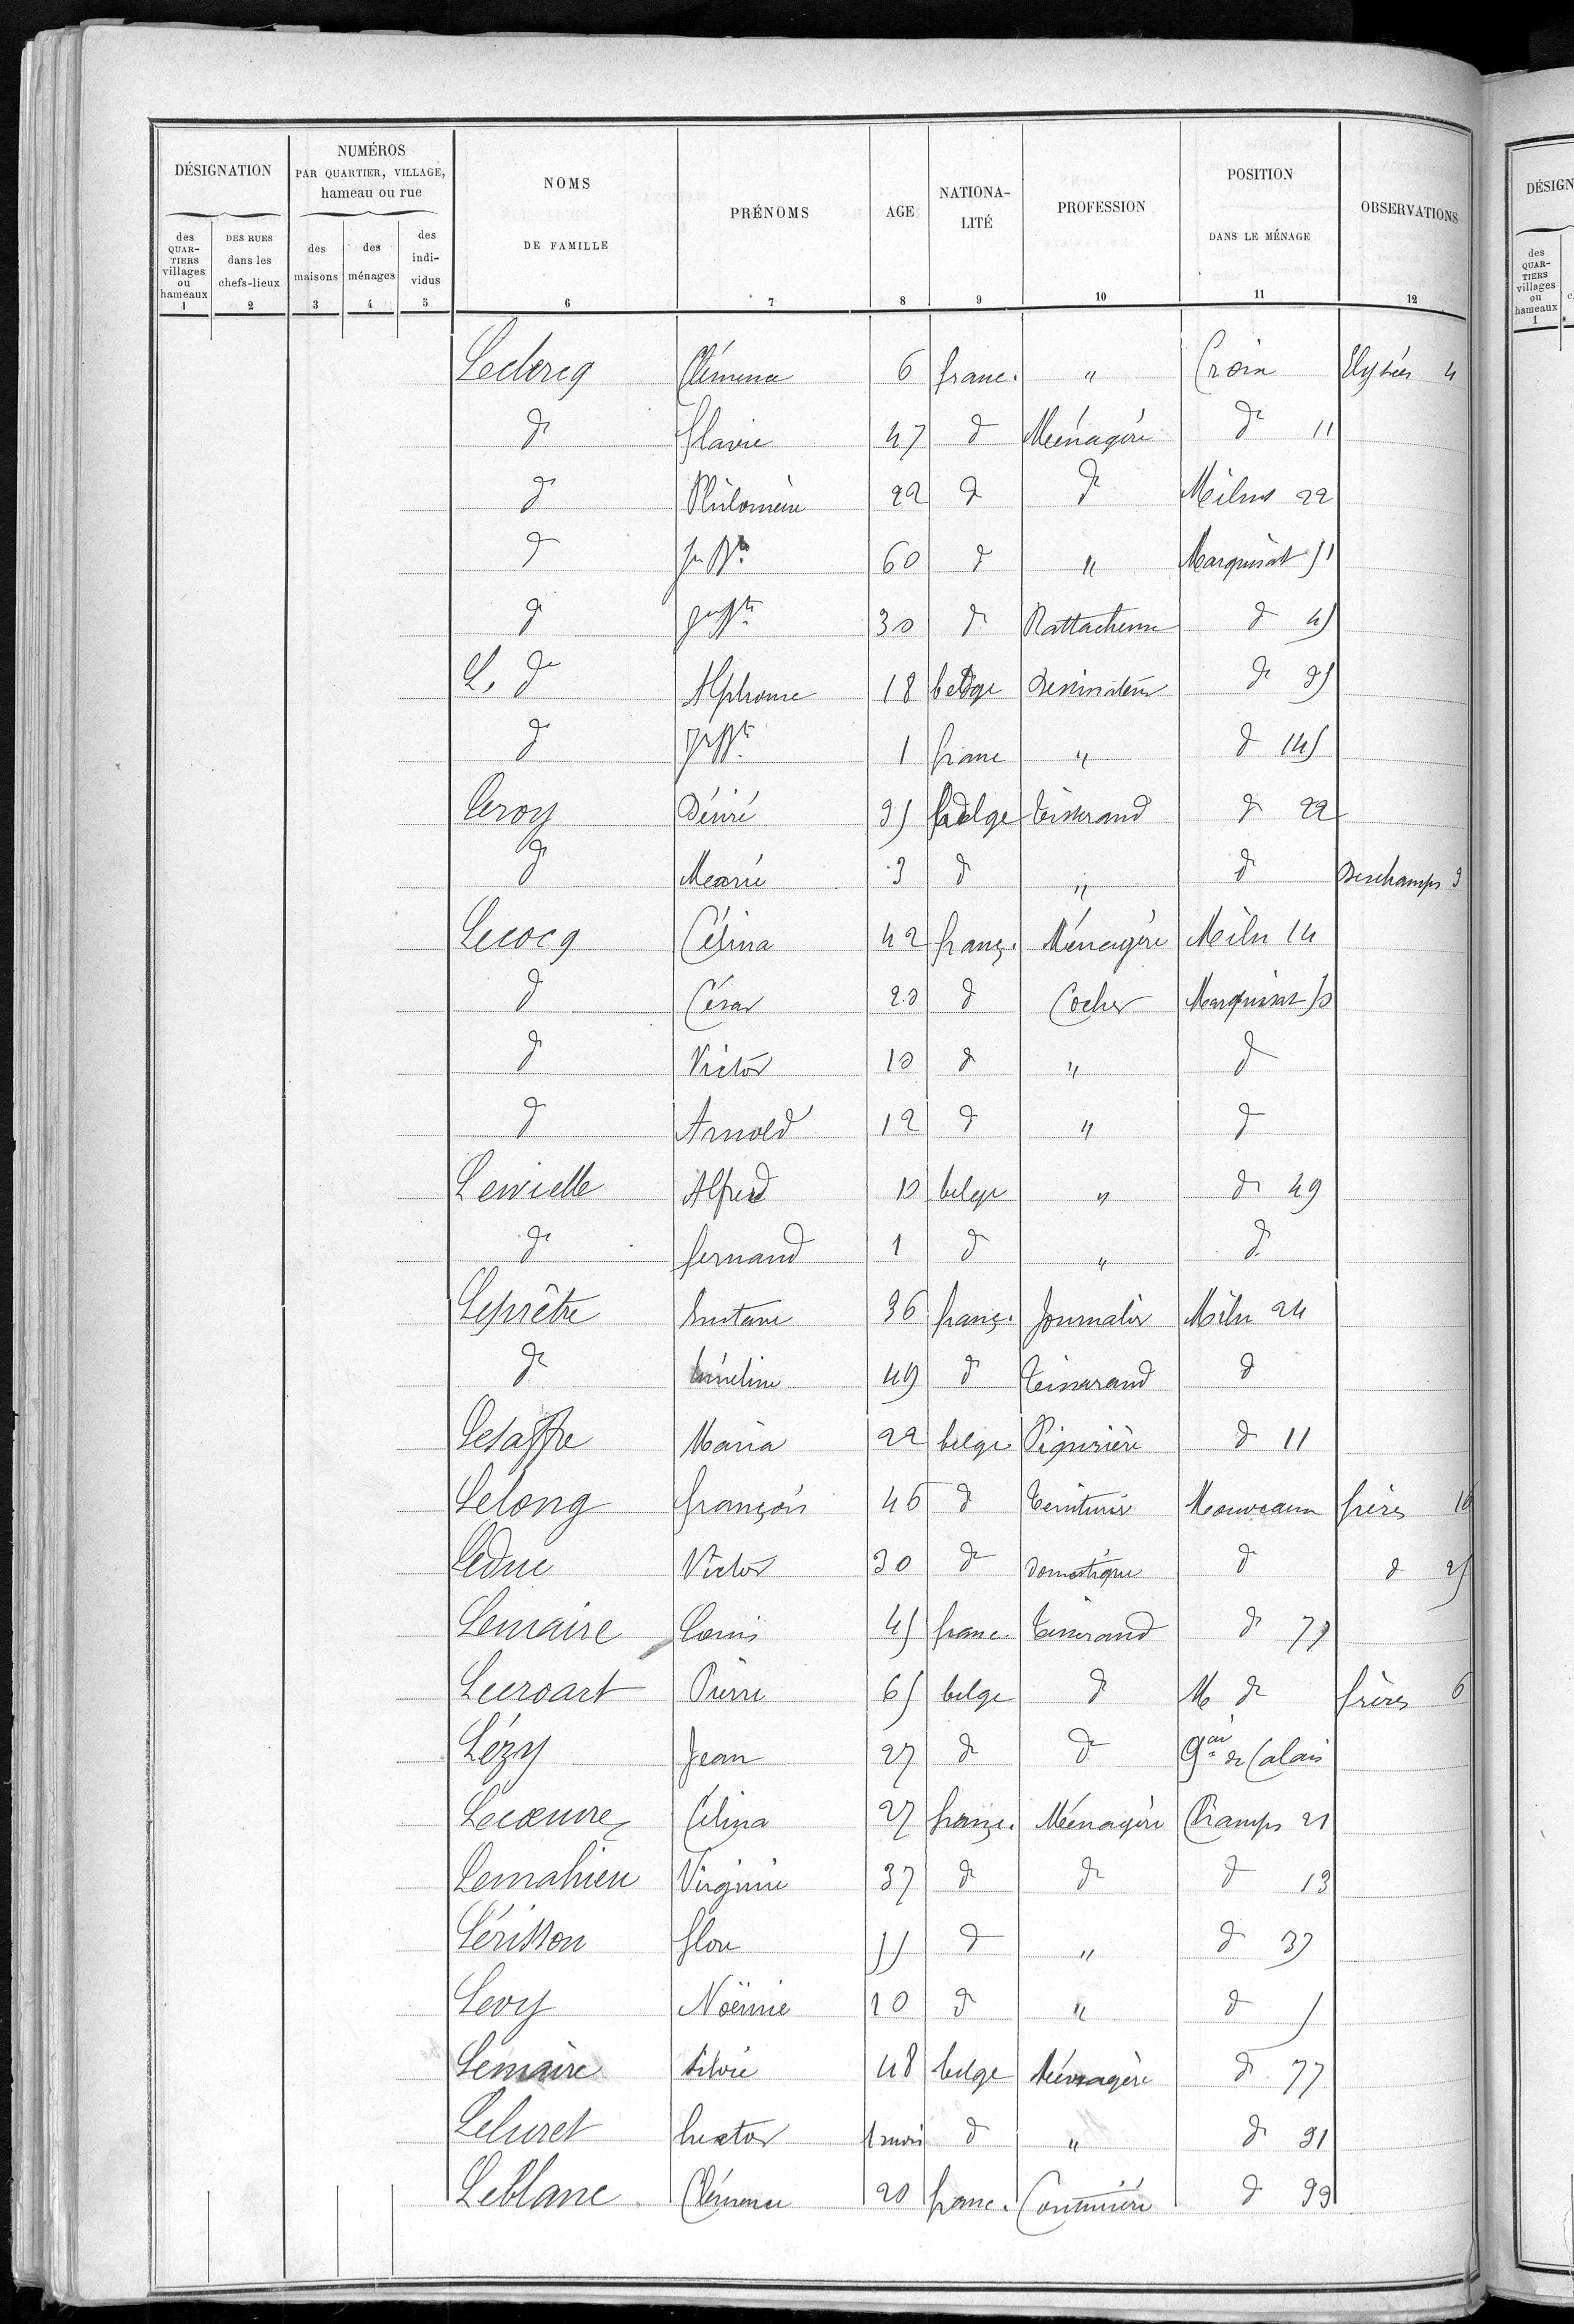 DÉSIGNATION
NUMÉROS
PAR QUARTIER, VILLAGE,
hameau ou rue
NOMS
DE FAMILLE
PRÉNOMS
AGE
NATIONA-
LITÉ
PROFESSION
POSITION
DANS LE MÉNAGE
OBSERVATIONS
des QUAR-TIERS villages ou hameaux
DES RUES dans les chefs-lieux
des maisons
des ménages
des indi-vidus
1 2 3 4 5 6 7 8 9 10 11 12
Leclercq Clémence 6 franc. " Croix Elysées 4
d° flavie 47 d° Ménagère d° 11
d° Philomène 22 d° d° Milus 22
d° Jn Bte 60 d° " Marquisat 51
d° Jn Bte 30 d° Rattacheur d° 45
L. d° Alphonse 18 belge Dessinateur d° 95
d° Jn Bte 1 franc " d° 145
Leroy Désiré 35 belge tisserand d° 22
d° Marie 3 d° " d° Deschamps 3
Lecocq Célina 42 franç. Ménagère Miln 14
d° César 20 d° Cocher Marquisat 50
d° Victor 10 d° " d°
d° Arnold 12 d° " d°
Lewielle Alfred 10 belge " d° 49
d° fernand 1 d° " d°
Leprêtre Gustave 36 franç. Journalier Miln 24
d° Emeline 49 d° Tisserand d°
Lesaffre Maria 22 belge Piqurière d° 11
Lelong françois 46 d° teinturier Mouveaux frères 16
Leduc Victor 30 d° domestique d° d° 25
Lemaire Louis 45 franc. tisserand d° 77
Lecroart Pierre 65 belge d° M d° frères 6
Lézy Jean 27 d° d° Qai de Calais
Lecœuvre Célina 27 franç. Ménagère Champs 21
Lemahieu Virginie 37 d° d° d° 13
Lérisson flore 55 d° " d° 37
Levy Noëmie 20 d° " d° 5
Lemaire silvie 48 belge Ménagère d° 77
Leluret hector 1 mois d° " d° 91
Leblanc Clémence 20 franc. Couturière d° 99
DÉSIGN
des QUAR-TIERS villages ou hameaux
1